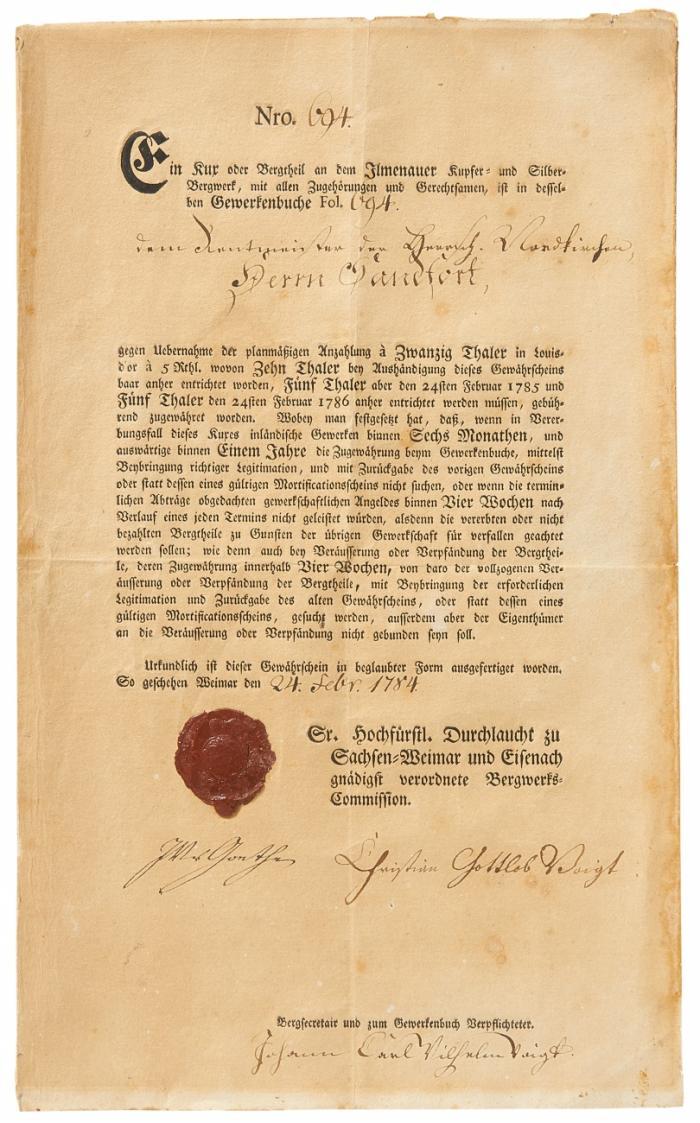 Nro. 694.
Ein Kux oder Bergtheil an dem Ilmenauer Kupfer- und Silber-
Bergwerk, mit allen Zugehörungen und Gerechtsamen, ist in dessel-
ben Gewerkenbuche Fol. 694.
dem Rentmeister der Herrsch. Nordkirchen,
Herrn Sandfort,
gegen Uebernahme der planmäßigen Anzahlung à Zwanzig Thaler in Louis-
d'or à 5 Rthl. wovon Zehn Thaler bey Aushändigung dieses Gewährscheins
baar anher entrichtet worden, Fünf Thaler aber den 24sten Februar 1785 und
Fünf Thaler den 24sten Februar 1786 anher entrichtet werden müssen, gebüh-
rend zugewähret worden. Wobey man festgesetzt hat, daß, wenn in Verer-
bungsfall dieses Kuxes inländische Gewerken binnen Sechs Monathen, und
auswärtige binnen Einem Jahre die Zugewährung beym Gewerkenbuche, mittelst
Beybringung richtiger Legitimation, und mit Zurückgabe des vorigen Gewährscheins
oder statt dessen eines gültigen Mortificationsscheins nicht suchen, oder wenn die termin-
lichen Abträge obgedachten gewerkschaftlichen Angeldes binnen Vier Wochen nach
Verlauf eines jeden Termins nicht geleistet würden, alsdenn die vererbten oder nicht
bezahlten Bergtheile zu Gunsten der übrigen Gewerkschaft für verfallen geachtet
werden sollen; wie denn auch bey Veräusserung oder Verpfändung der Bergthei-
le, deren Zugewährung innerhalb Vier Wochen, von dato der vollzogenen Ver-
äusserung oder Verpfändung der Bergtheile, mit Beybringung der erforderlichen
Legitimation und Zurückgabe des alten Gewährscheins, oder statt dessen eines
gültigen Mortificationsscheins, gesucht werden, ausserdem aber der Eigenthümer
an die Veräusserung oder Verpfändung nicht gebunden seyn soll.
Urkundlich ist dieser Gewährschein in beglaubter Form ausgefertiget worden.
So geschehen Weimar den 24. Febr. 1784
Sr. Hochfürstl. Durchlaucht zu
Sachsen-Weimar und Eisenach
gnädigst verordnete Bergwerks-
Commission.
JWv Goethe Christian Gottlob Voigt
Bergsecretair und zum Gewerkenbuch Verpflichteter.
Johann Carl Wilhelm Voigt.